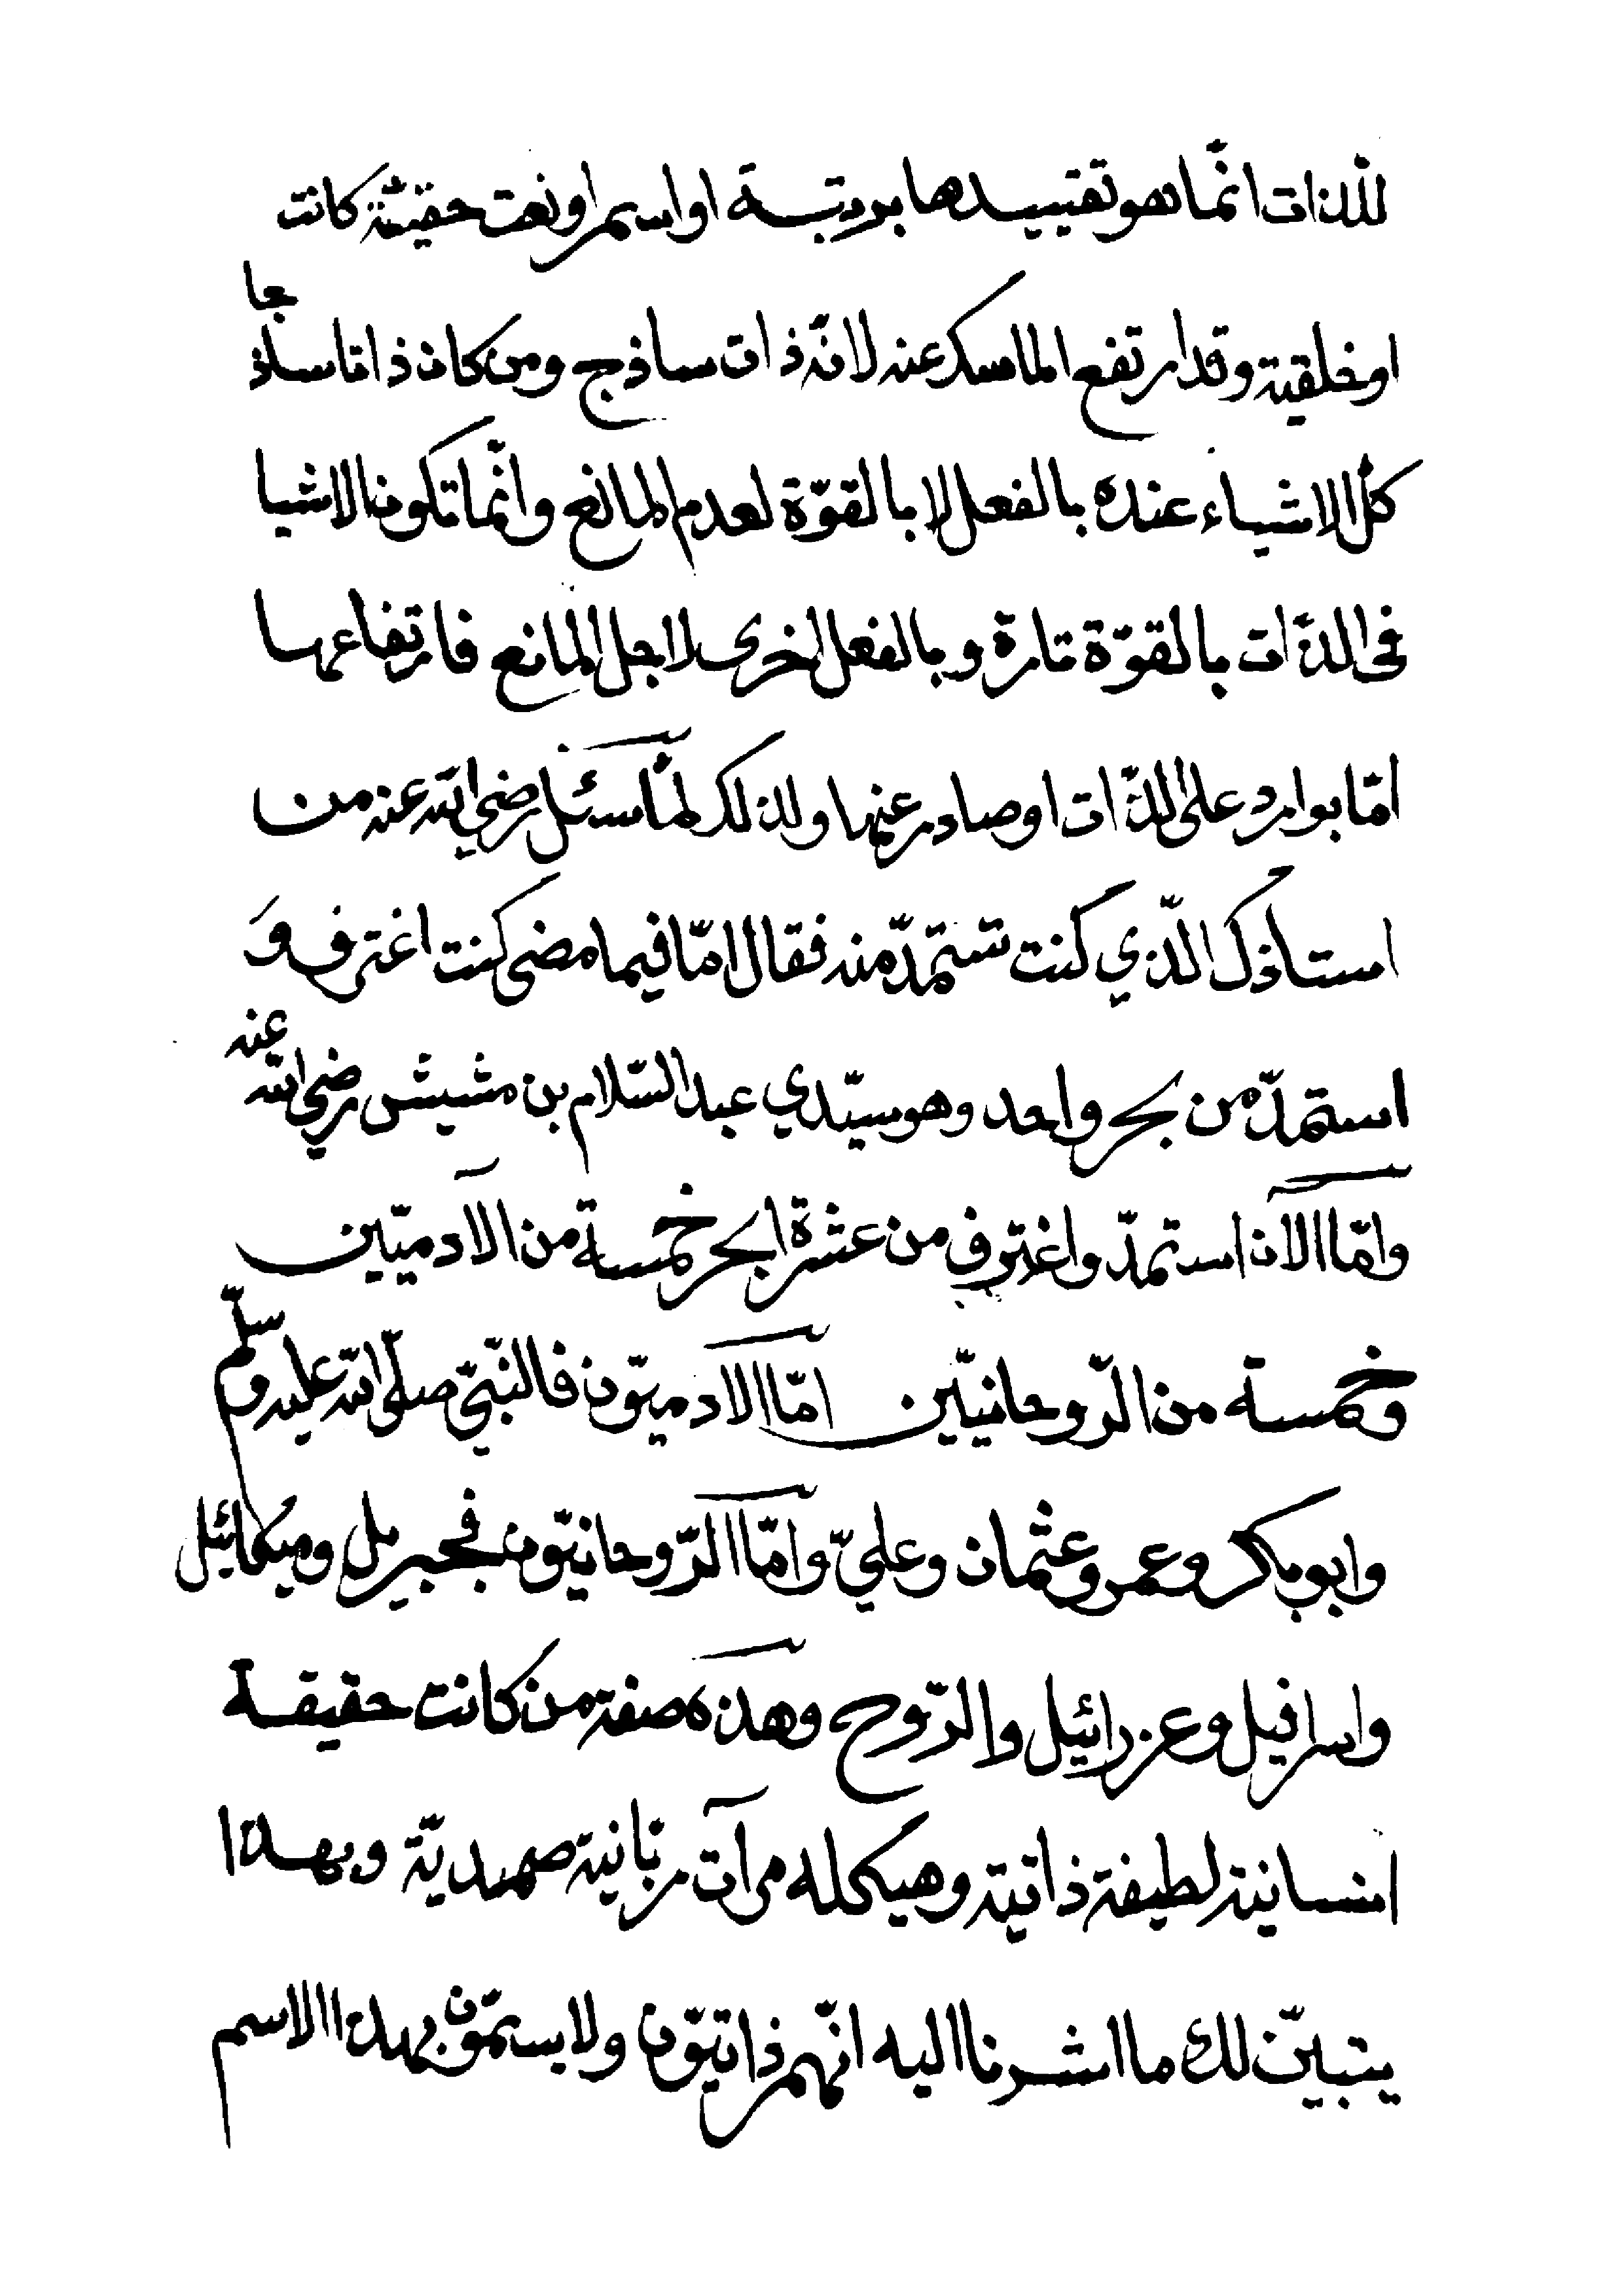 للذات انّما هو تقييدها بمرتبة او اسم او نعت حقيّة كانت
او خلقية وقد ارتفع الماسك عنه لانّه ذات ساذج ومن كان ذاتا ساذجا
كلّ الاشياء عنده بالفعل لا بالقوّة لعدم المانع وانّما تكون الاشيا
فى الذّات بالقوّة تارة وبالفعل اخرى لاجل المانع فارتفاعها
امّا بوارد على الذّات او صادر عنها ولذلك لمّا سئل رضي الله عنه من
استاذك الّذي كنت تستمدّ منه فقال امّا فيما مضى كنت اغترف وَ
استمدّ من بحر واحد وهو سيّدي عبد السّلام بن مشيش رضي الله عنه
وامّا الآن استمدّ واغترف من عشرة ابحر خمسة من الآدميّين
وخمسة من الرّوحانيّين امّا الآدميّون فالنّبيّ صلّى الله عليه وسلّم
وابو بكر وعمر وعثمان وعليّ وامّا الرّوحانيّون فجبريل وميكائيل
واسرافيل وعزرائيل والرّوح وهذه صفة من كانت حقيقة
انسانية لطيفة ذاتية وهيكله مرآت ربّانية صمديّة وبهذا
يتبيّن لك ما اشرنا اليه انّهم ذاتيّون ولا يسمّون بهذا الاسم